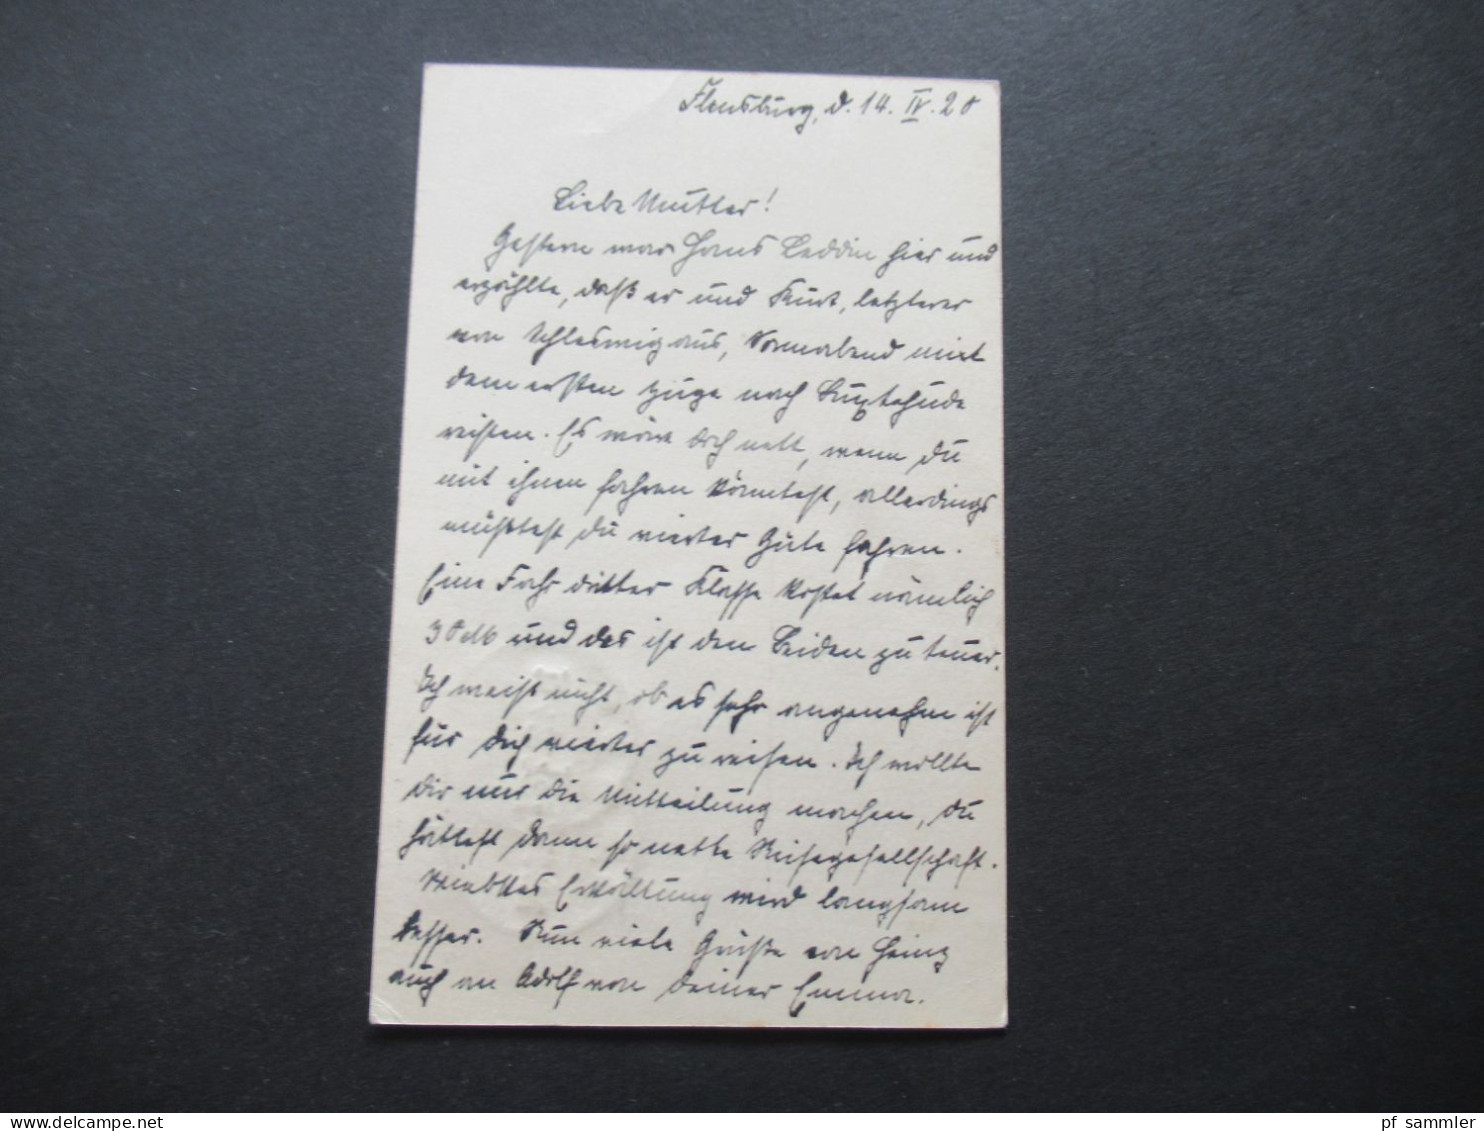 Flensburg, d. 14. IV. 20
Liebe Mutter!
Gestern war Hans Leddin hier und
erzählte, daß er und Kurt, letzterer
von Schleswig aus, Sonnabend mit
dem ersten Zuge nach Buxtehude
reisten. Es wäre doch nett, wenn Du
mit ihnen fahren könntest, allerdings
müßtest Du vierter Güte fahren.
Eine Fahrt dritter Klasse kostet nämlich
30 M und das ist den Beiden zu teuer.
Ich weiß nicht, ob es sehr angenehm ist
für Dich vierter zu reisen. Ich wollte
Dir nur die Mitteilung machen, Du
hättest dann so nette Reisegesellschaft.
Erkältung wird langsam
besser. Nun viele Grüße von Heinz
auch an Adolf von Deiner Emma.
pf sammler
delcampe.net